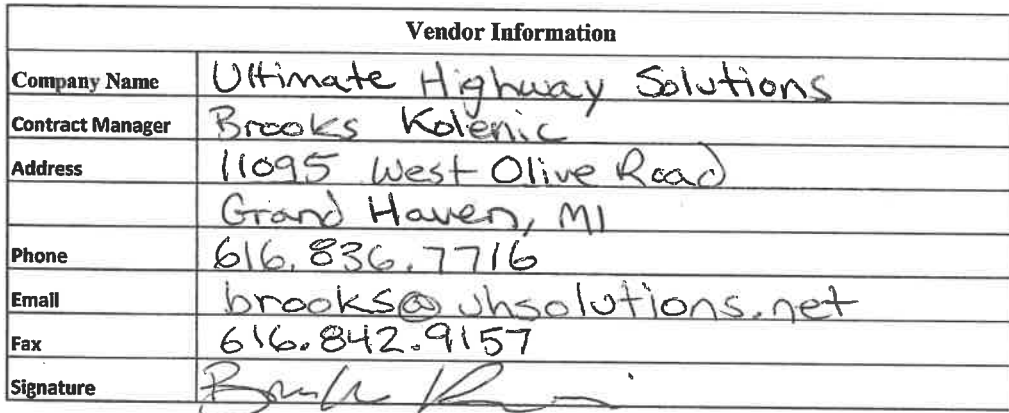 Vendor Information
Company Name Ultimate Highway Solutions
Contract Manager Brooks Kolenic
Address 11095 West Olive Road
Grand Haven, MI
Phone 616.836.7716
Email brooks@uhsolutions.net
Fax 616.842.9157
Signature